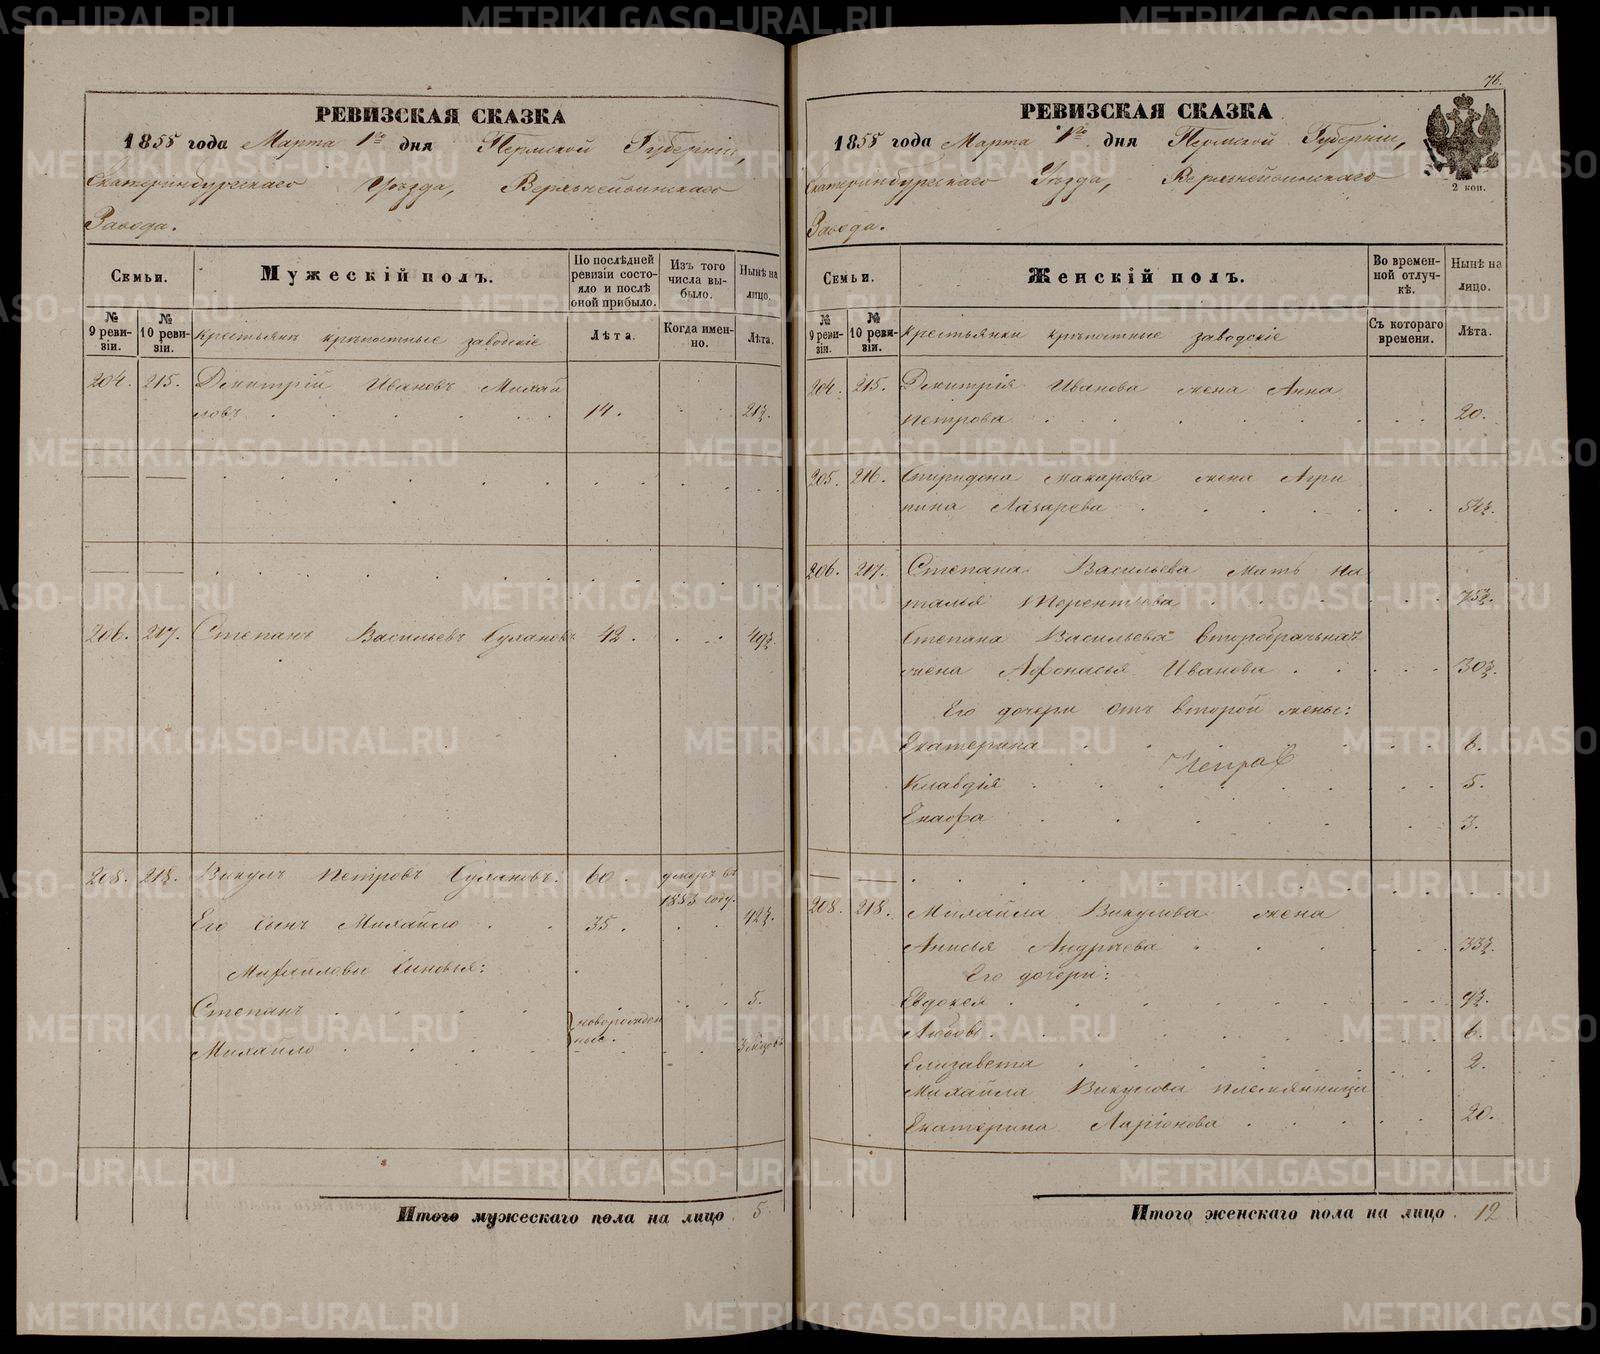 РЕВИЗСКАЯ СКАЗКА
1855 года Марта 1го дня Пермской Губерніи,
Екатеринбургскаго Уѣзда, Верхнейвинскаго
Завода.
Семьи.
Мужескій полъ.
По послѣдней ревизіи состояло и послѣ оной прибыло.
Изъ того числа выбыло.
Нынѣ на лицо.
№ 9 ревизіи.
№ 10 ревизіи.
Крестьянъ крѣпостные заводскіе
Лѣта.
Когда именно.
Лѣта.
204. 215. Димитрій Ивановъ Михай
ловъ 14. 21½.
206. 217. Степанъ Васильевъ Сухановъ 42. 49½.
208. 218. Викулъ Петровъ Сухановъ. 60. умеръ въ
1853 году.
Его сынъ Михайло 35. 42½.
Михайловы сыновья:
Степанъ 5.
новорожден
ные.
Михайло 3 мѣсяцъ
Итого мужескаго пола на лицо 5.
76.
РЕВИЗСКАЯ СКАЗКА
1855 года Марта 1го дня Пермской Губерніи,
Екатеринбургскаго Уѣзда, Верхнейвинскаго
2 коп.
Завода.
Семьи.
Женскій полъ.
Во временной отлучкѣ.
Нынѣ на лицо.
№ 9 ревизіи.
№ 10 ревизіи.
Крестьянки крѣпостные заводскіе
Съ котораго времени.
Лѣта.
204. 215. Димитрія Иванова жена Анна
Петрова 20.
205. 216. Спиридона Макарова жена Агри
пина Лазарева 54½.
206. 217. Степана Васильева мать На
талья Терентьева 75½.
Степана Васильева второбрачная
жена Афонасья Иванова 30½.
Его дочери отъ второй жены:
Екатерина 6.
Клавдія 5.
Енафа 3.
208. 218. Михайла Викулова жена
Анисья Андреева 33½.
Его дочери:
Евдокея 9½.
Любовь 6.
Елизавета 2.
Михайла Викулова племянница
Екатерина Ларіонова 20.
Итого женскаго пола на лицо 12
METRIKI.GASO-URAL.RU